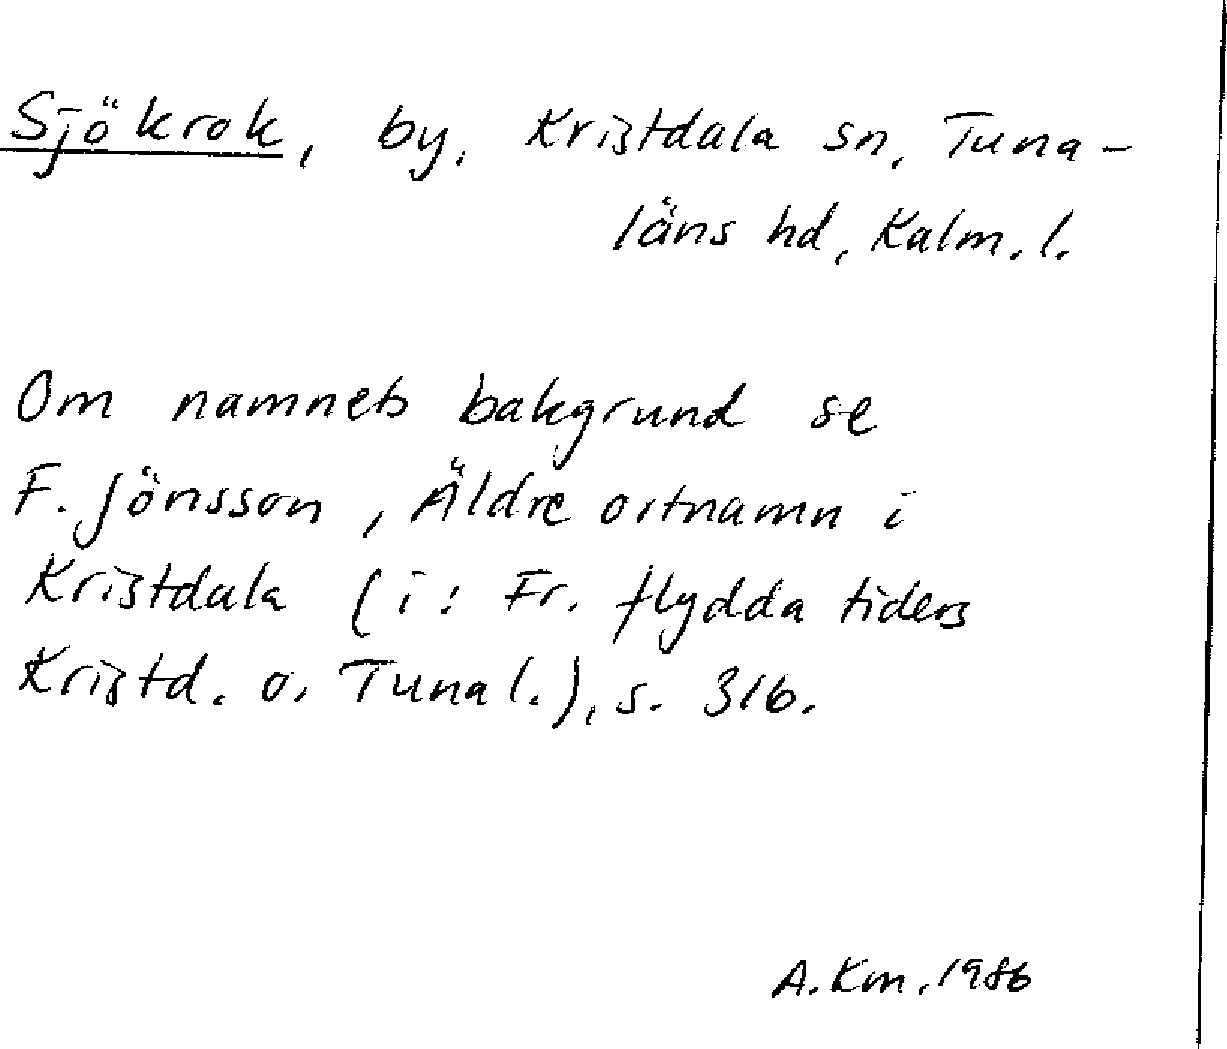 Sjökrok, by, Kristdala sn, Tuna-
läns hd, Kalm. l.
Om namnets bakgrund se
F. Jönsson, Äldre ortnamn i
Kristdala (i: Fr. flydda tiders
Kristd. o. Tunal.), s. 316.
A. Km, 1986